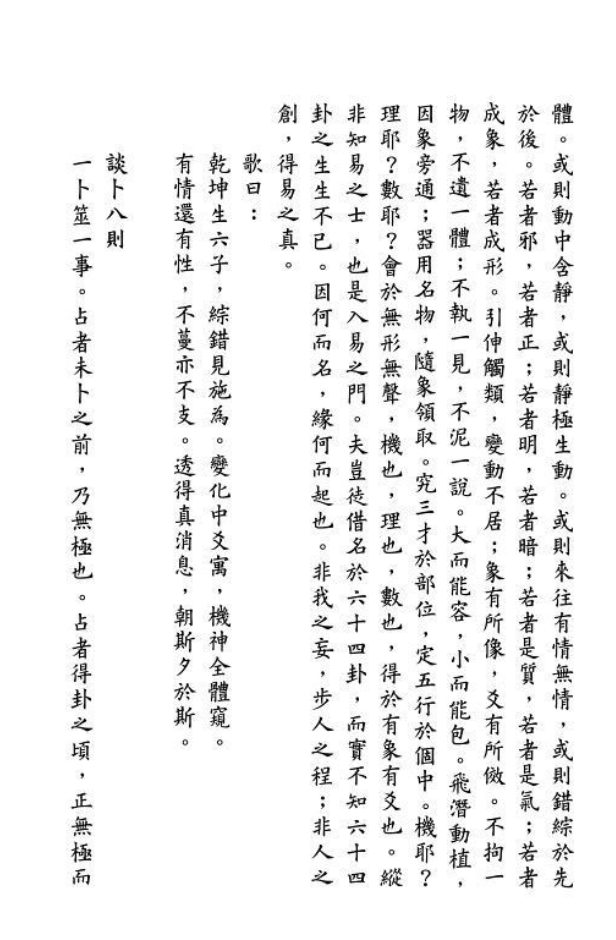 體。或則動中含靜,或則靜極生動。或則來往有情無情,或則錯綜於先
於後。若者邪,若者正;若者明,若者暗;若者是質,若者是氣;若者
成象,若者成形。引伸觸類,變動不居;象有所像,爻有所倣。不拘一
物,不遺一體;不執一見,不泥一說。大而能容,小而能包。飛潛動植,
因象旁通;器用名物,隨象領取。究三才於部位,定五行於個中。機耶?
理耶?數耶?會於無形無聲,機也,理也,數也,得於有象有爻也。縱
非知易之士,也是入易之門。夫豈徒借名於六十四卦,而實不知六十四
卦之生生不已。因何而名,緣何而起也。非我之妄,步人之程;非人之
創,得易之真。
歌曰:
乾坤生六子,綜錯見施為。變化中爻寓,機神全體窺。
有情還有性,不蔓亦不支。透得真消息,朝斯夕於斯。
談卜八則
一卜筮一事。占者未卜之前,乃無極也。占者得卦之頃,正無極而